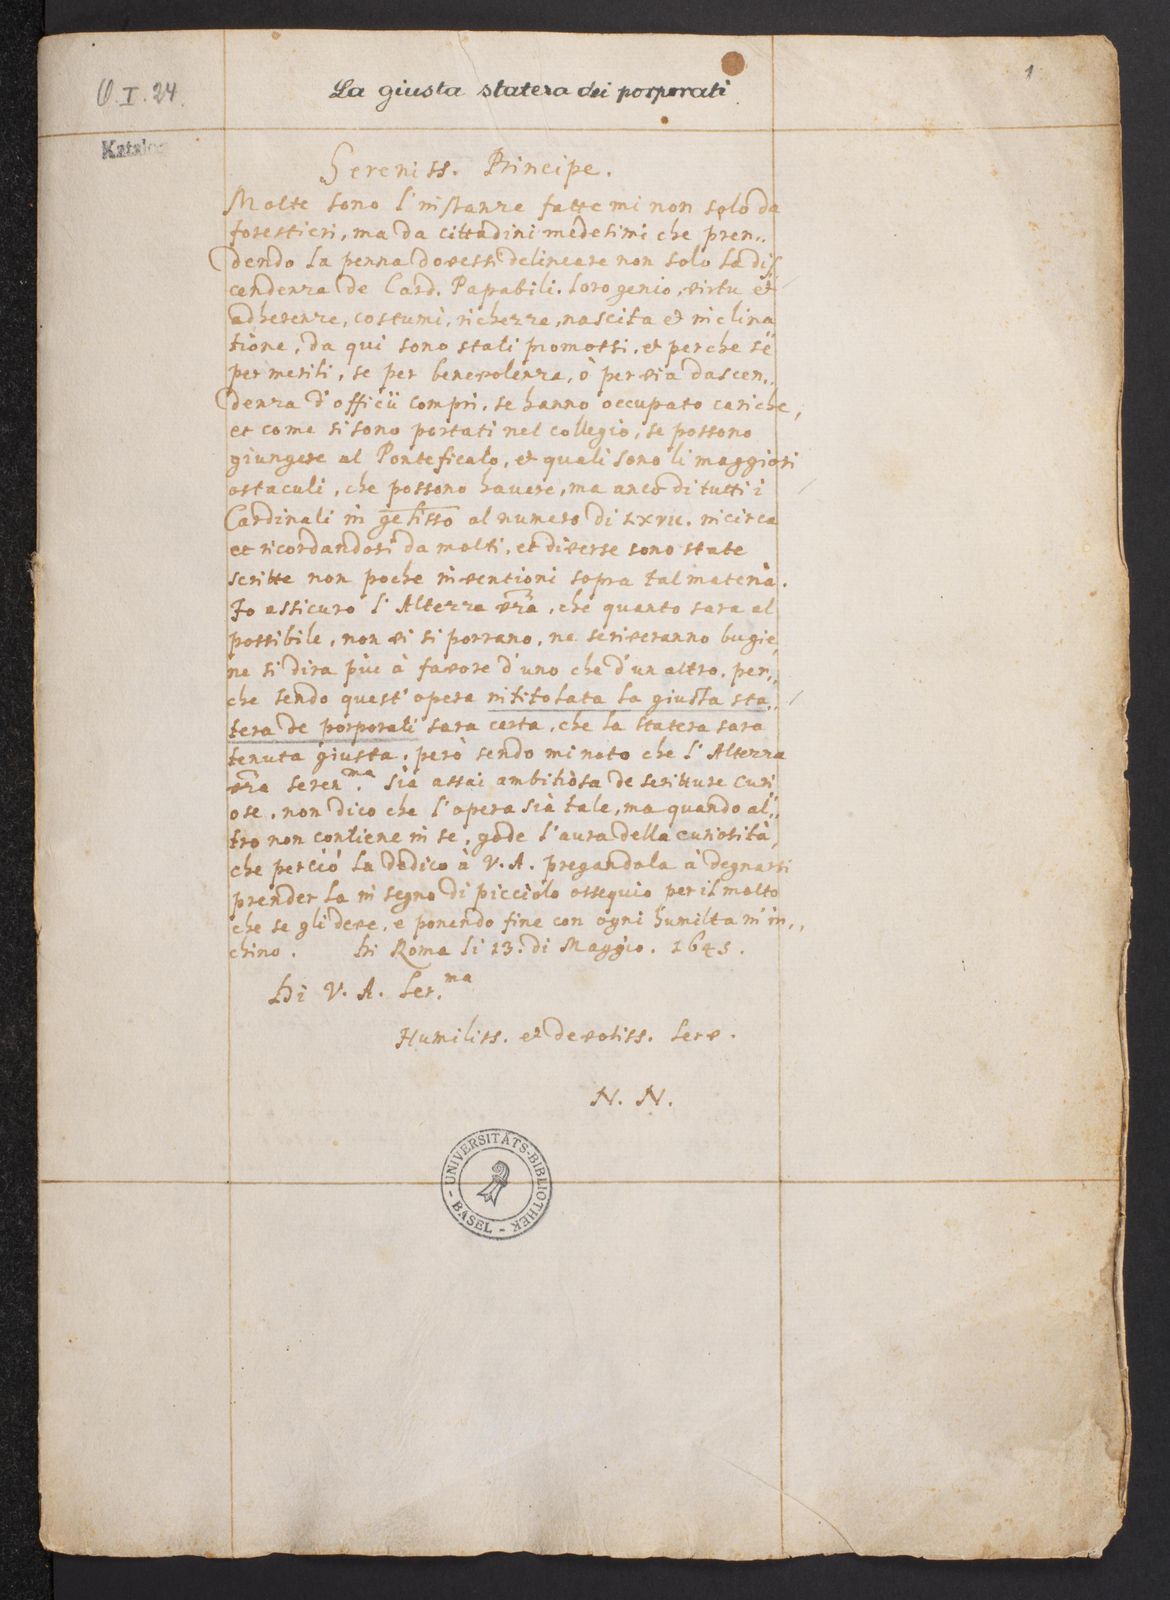 O. I. 24.
La giusta statera dei porporati
1
Katalog
Sereniss. Principe.
Molte sono l'instanze fatte mi non solo da
forestieri, ma da cittadini medesimi che pren„
dendo la penna dovessi delineare non solo la dis
cendenza de Card. Papabili. loro genio, virtu et
adherenze, costumi, richezze, nascita et inclina
tione, da qui sono stati promossi, et perche se
per meriti, se per benevolenza, ò per via dascen„
denza d'officii compri, se hanno occupato cariche,
et come si sono portati nel collegio, se possono
giungere al Ponteficato, et quali sono li maggiori
ostaculi, che possono havere, ma anco di tutti i
Cardinali in al numero di LXVII. in circa
et ricordandosi da molti, et diverse sono state
scritte non poche inventioni sopra tal materia.
Io assicuro l'Altezza vra, che quanto sara al
possibile, non vi si porrano, ne scriveranno bugie,
ne si dira più à favore d'uno che d'un altro, per„
che sendo quest' opera intitolata la giusta sta„
tera de porporati sara certa, che la statera sara
tenuta giusta, però sendo mi noto che l'Altezza
vra seren.ma sia assai ambitiosa de scritture curi
ose, non dico che l'opera sia tale, ma quando al„
tro non contiene in se, gode l'aura della curiosità,
che perciò la dedico à V. A. pregandola à degnarsi
prender la in segno di picciolo ossequio per il molto
che se gli deve, e ponendo fine con ogni humilta m'in„
chino. Di Roma li 13. di Maggio. 1645.
Di V. A. Ser.ma
Humiliss. et devotiss. Serv.
N. N.
UNIVERSITÄTS-BIBLIOTHEK
- BASEL -